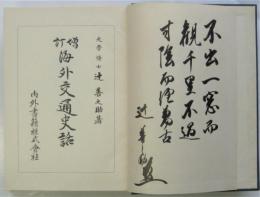 不出一窓而
觀千里不過
寸陰而徑萬古
辻善之助
文學博士 辻善之助著
增訂 海外交通史話
內外書籍株式會社